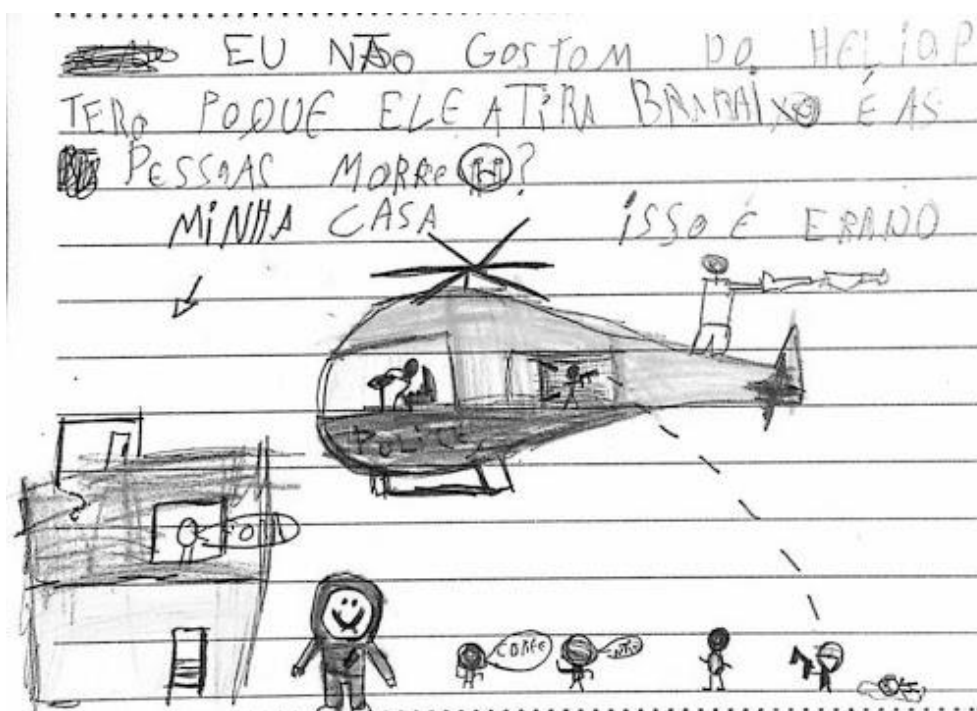 EU NÃO GOSTOM DO HELIOP
TERO POQUE ELE ATIRA É AS
PESSOAS MORRE ?
MINHA CASA ISSO É ERRADO
POLICE
OI
CORRE